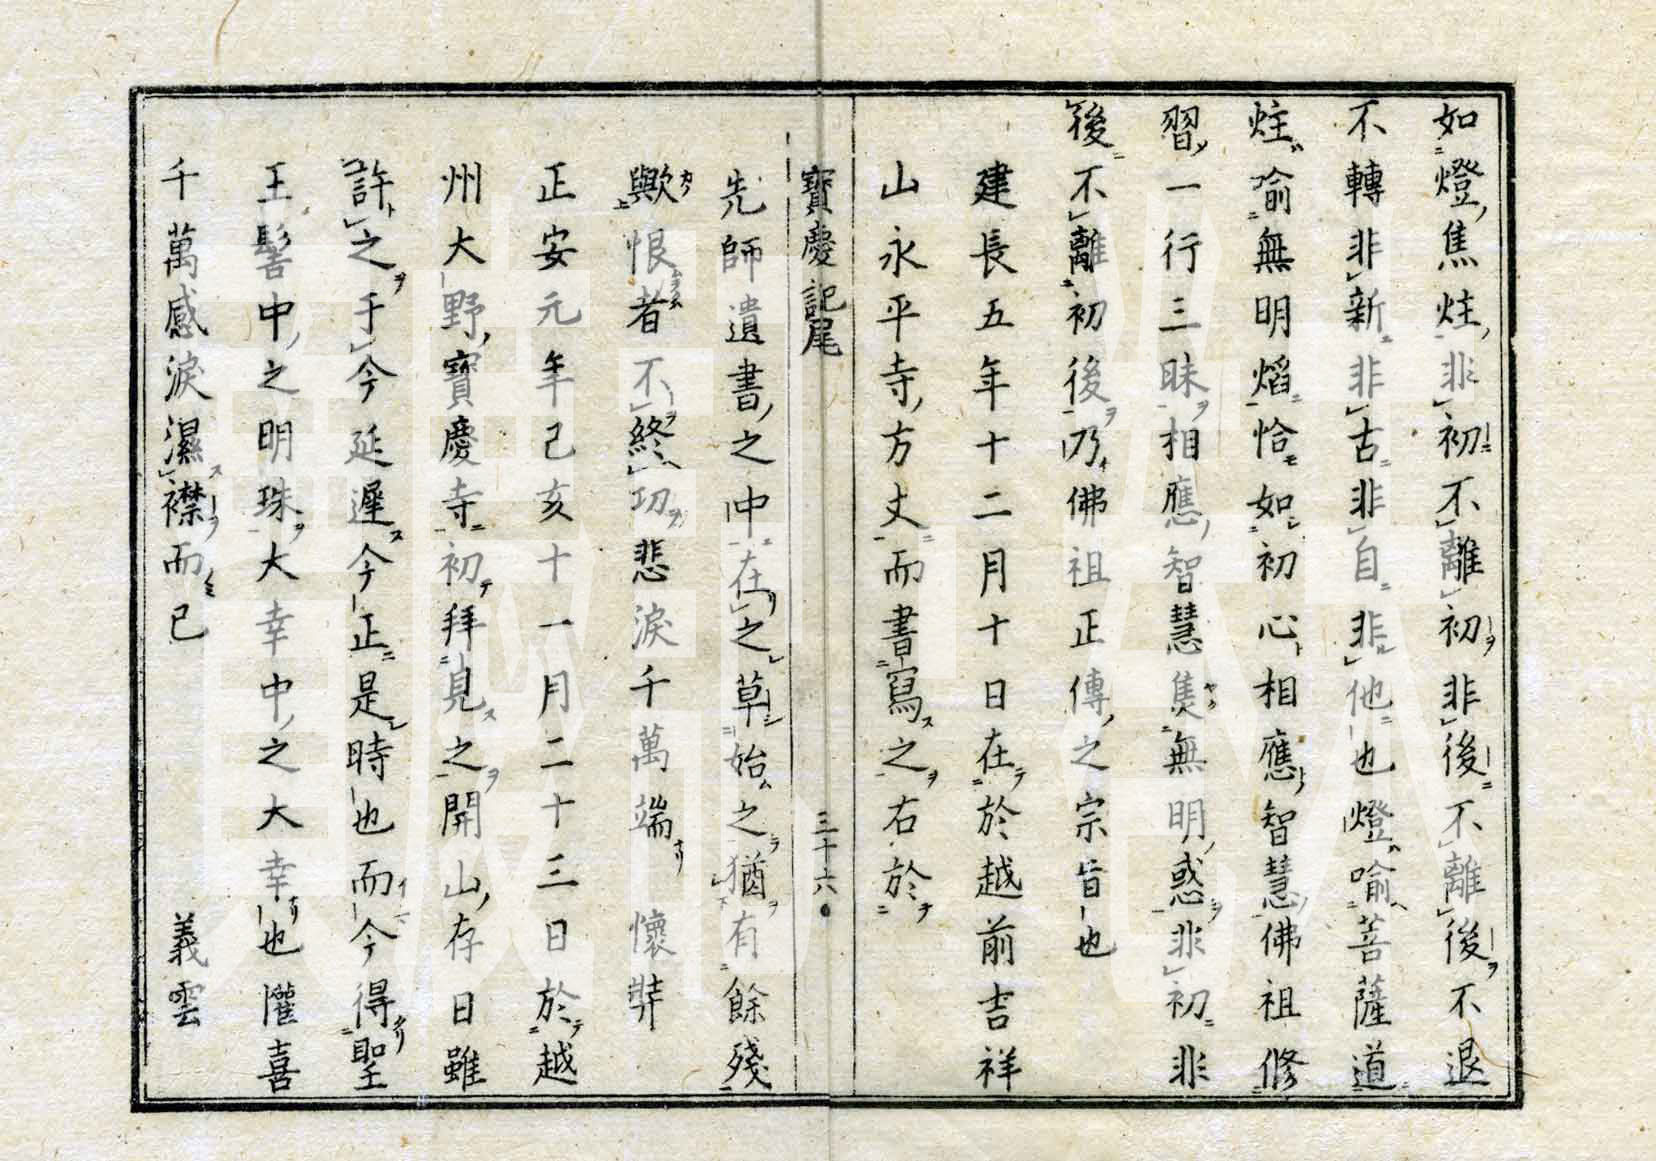 如燈焦炷非初不離初非後不離後不退
不轉非新非古非自非他也燈喩菩薩道
炷喩無明焰恰如初心相應智慧佛祖修
習一行三昧相應智慧焦無明惑非初非
後不離初後乃佛祖正傳之宗旨也
建長五年十二月十日在於越前吉祥
山永平寺方丈而書寫之右於
寶慶記尾
三十六
先師遺書之中在之草始之猶有餘殘
歟恨者不終功悲淚千萬端 懷弉
正安元年己亥十一月二十三日於越
州大野寶慶寺初拜見之開山存日雖
許之于今延遲今正是時也而今得聖
王髻中之明珠大幸中之大幸也懽喜
千萬感淚濕襟而已 義雲